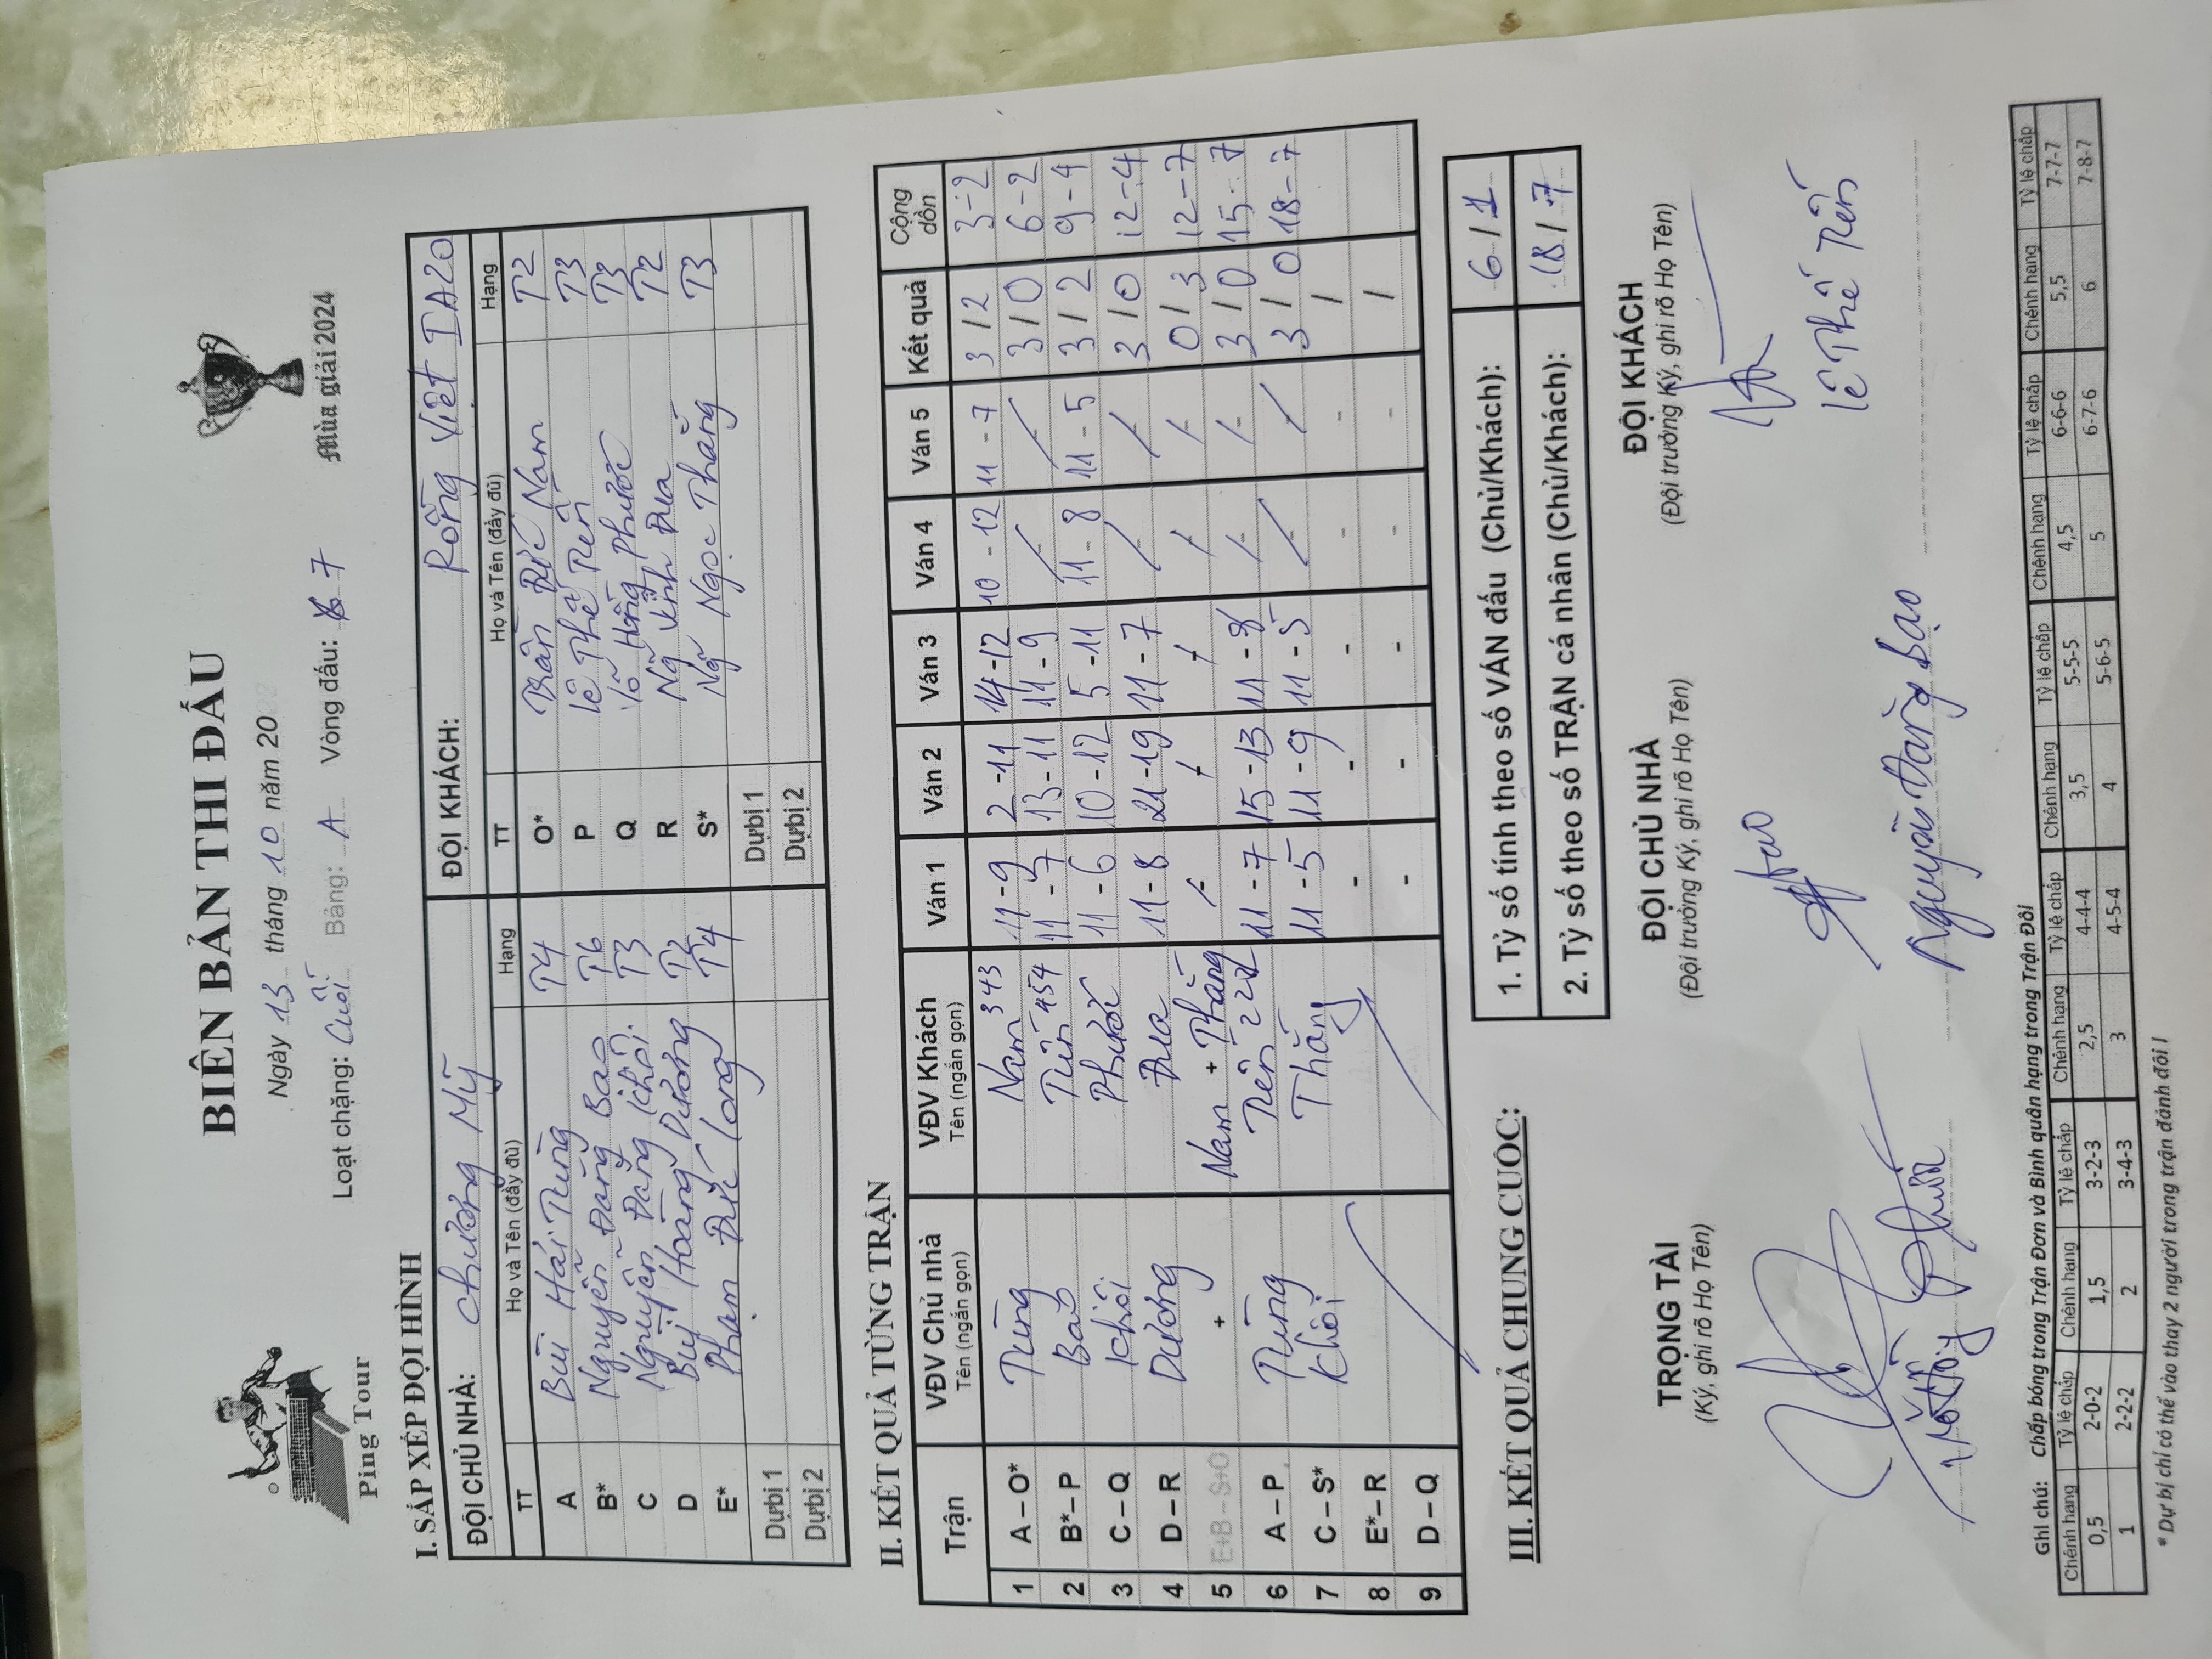 BIÊN BẢN THI ĐẤU
Ngày 13 tháng 10 năm 20
Loạt chặng: Cuối Bảng: A Vòng đấu: 7
Ping Tour
Mùa giải 2024
I. SẮP XẾP ĐỘI HÌNH
ĐỘI CHỦ NHÀ: Chương Mỹ ĐỘI KHÁCH: Rồng Việt IA20
TT Họ và Tên (đầy đủ) Hạng TT Họ và Tên (đầy đủ) Hạng
A Bùi Hải Tùng T4 O* Trần Đức Nam T2
B* Nguyễn Đăng Bao T6 P Lê Thế Tiến T3
C Nguyễn Đăng Khôi T3 Q Võ Hồng Phước T3
D Bùi Hoàng Dương T2 R Ng Vĩnh Đua T2
E* Phạm Đức Long T4 S* Ng Ngọc Thắng T3
Dự bị 1 Dự bị 1
Dự bị 2 Dự bị 2
II. KẾT QUẢ TỪNG TRẬN
Trận VĐV Chủ nhà Tên (ngắn gọn) VĐV Khách Tên (ngắn gọn) Ván 1 Ván 2 Ván 3 Ván 4 Ván 5 Kết quả Cộng dồn
1 A – O* Tùng Nam 343 11-9 2-11 14-12 10-12 11-7 3/2 3-2
2 B* – P Bao Tiến 454 11-7 13-11 11-9 - - 3/0 6-2
3 C – Q Khôi Phước 11-6 10-12 5-11 11-8 11-5 3/2 9-4
4 D – R Dương Đua 11-8 21-19 11-7 - - 3/0 12-4
5 E+B – S+O + Nam + Thắng - - - - - 0/3 12-7
6 A – P Tùng Tiến 222 11-7 15-13 11-8 - - 3/0 15-7
7 C – S* Khôi Thắng 11-5 11-9 11-5 - - 3/0 18-7
8 E* – R - - - - - /
9 D – Q - - - - - /
III. KẾT QUẢ CHUNG CUỘC:
1. Tỷ số tính theo số VÁN đấu (Chủ/Khách): 6/1
2. Tỷ số theo số TRẬN cá nhân (Chủ/Khách): 18/7
TRỌNG TÀI ĐỘI CHỦ NHÀ ĐỘI KHÁCH
(Ký, ghi rõ Họ Tên) (Đội trưởng Ký, ghi rõ Họ Tên) (Đội trưởng Ký, ghi rõ Họ Tên)
bao
Lê Thế Tiến
Nguyễn Đăng Bao
Ghi chú: Chấp bóng trong Trận Đơn và Bình quân hạng trong Trận Đôi
Chênh hạng Tỷ lệ chấp Chênh hạng Tỷ lệ chấp Chênh hạng Tỷ lệ chấp Chênh hạng Tỷ lệ chấp Chênh hạng Tỷ lệ chấp Chênh hạng Tỷ lệ chấp
0,5 2-0-2 1,5 3-2-3 2,5 4-4-4 3,5 5-5-5 4,5 6-6-6 5,5 7-7-7
1 2-2-2 2 3-4-3 3 4-5-4 4 5-6-5 5 6-7-6 6 7-8-7
* Dự bị chỉ có thể vào thay 2 người trong trận đánh đôi !